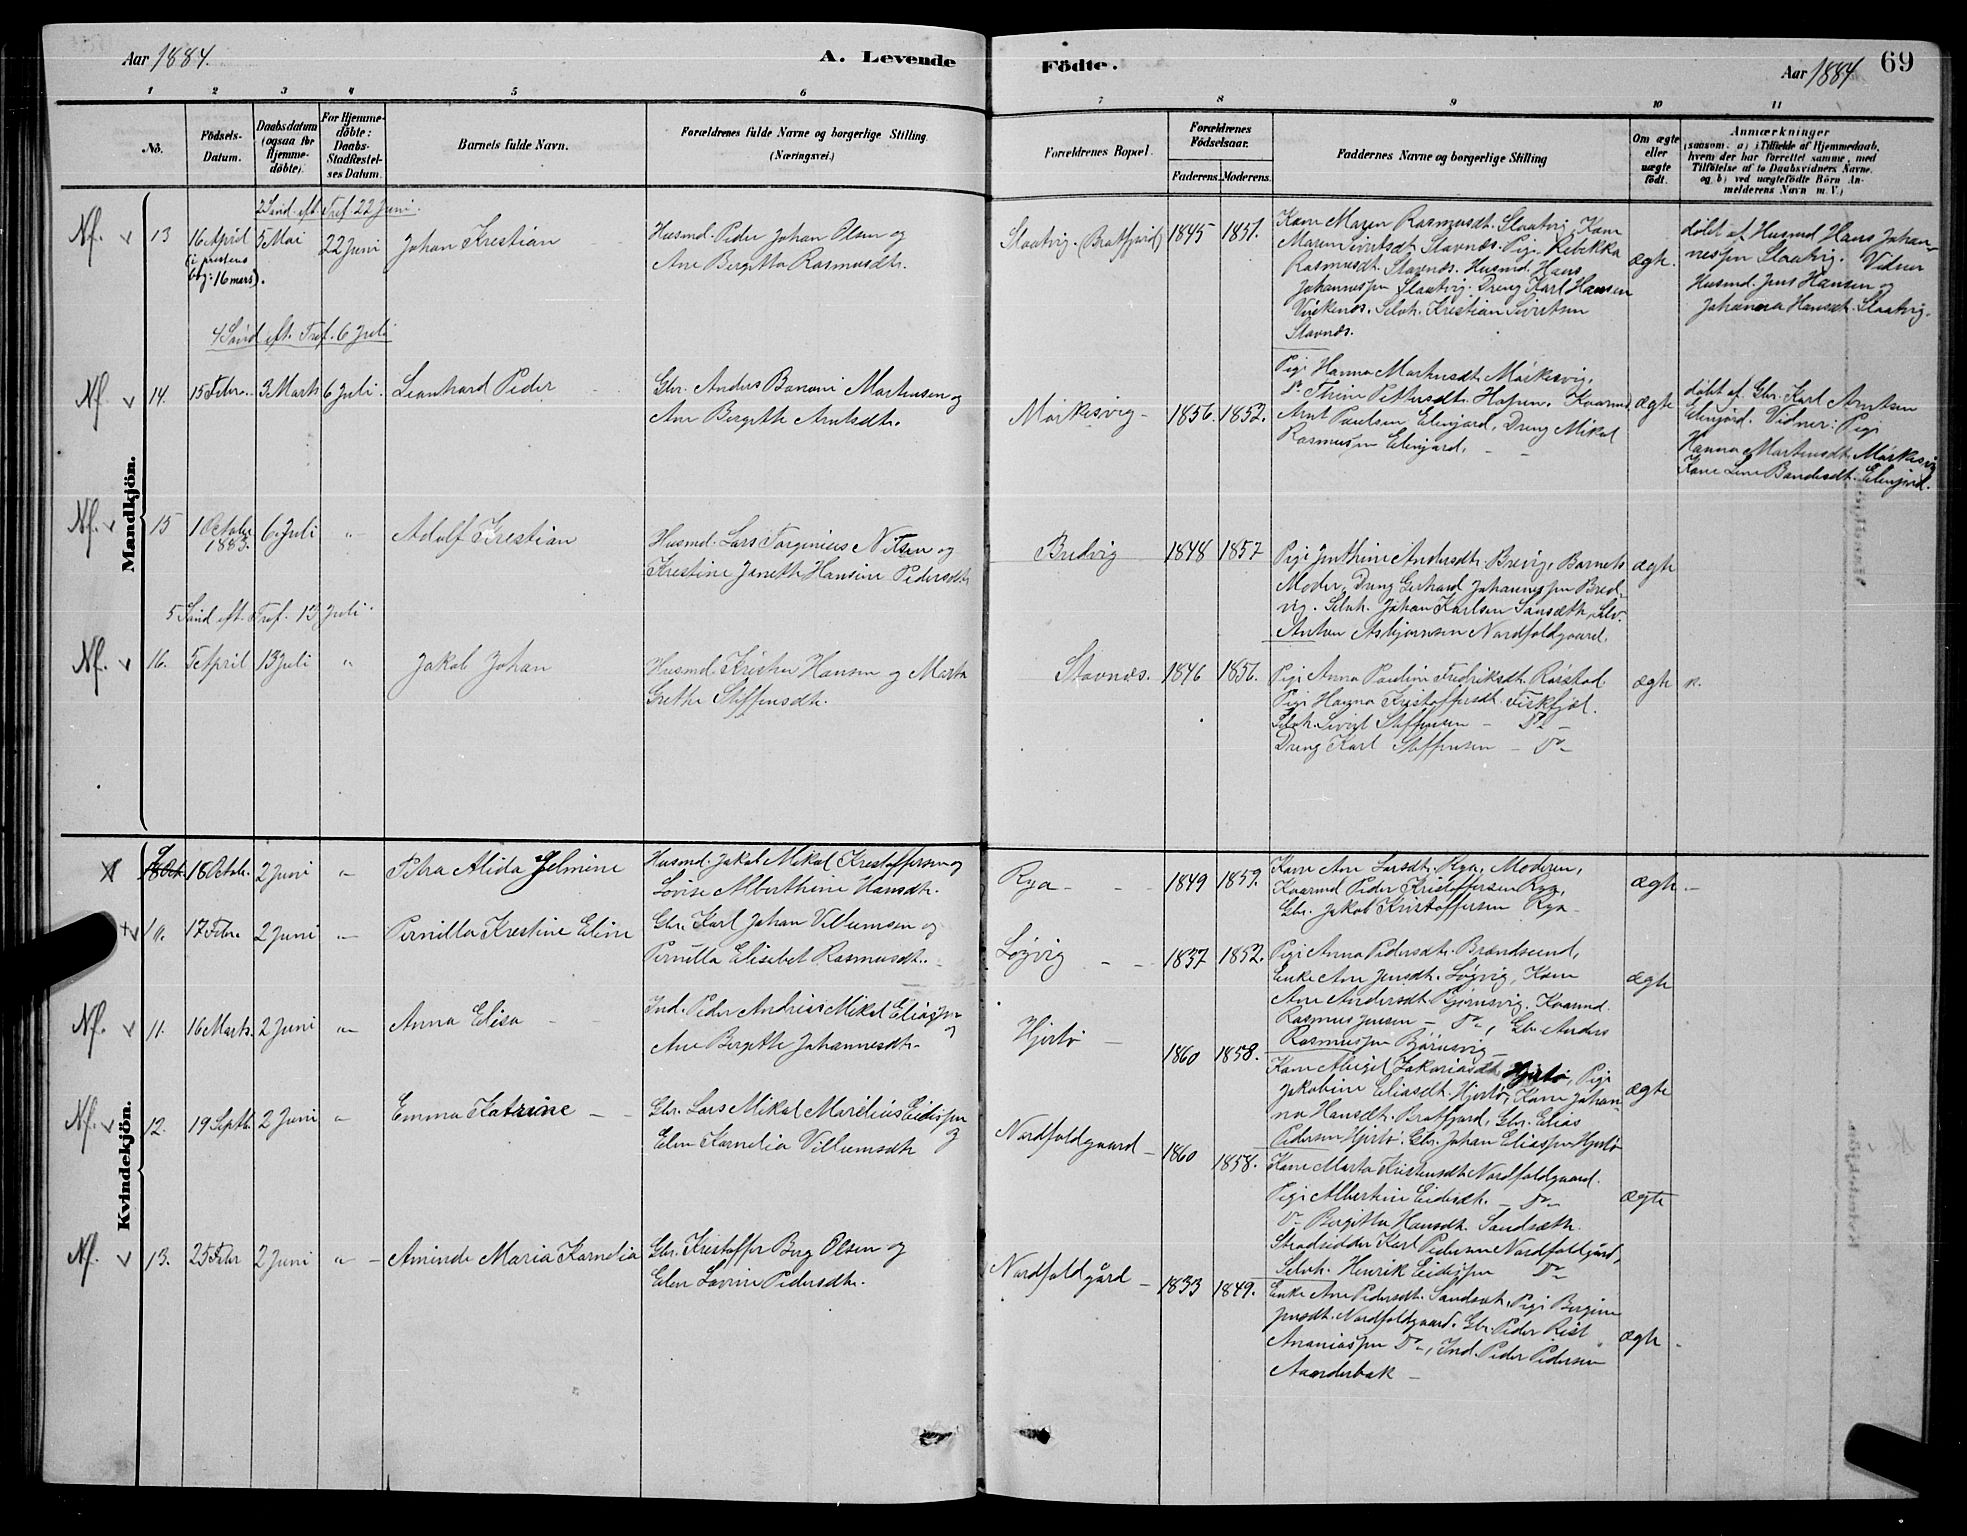 Aar 1884.
A. Levende
Födte.
Aar 1884
69
1 2 3 4 5 6 7 8 9 10 11
No.
Födsels-
Datum.
Daabsdatum
(ogsaa for
Hjemme-
døbte).
For Hjemme-
døbte:
Daabs-
Stadfæstel-
ses Datum.
Barnets fulde Navn.
Forældrenes fulde Navne og borgerlige Stilling
(Næringsvei.)
Forældrenes Bopæl.
Forældrenes
Födselsaar.
Faderens.
Moderens.
Faddernes Navne og borgerlige Stilling
Om ægte
eller
uægte
født.
Anmærkninger
(saasom: a) i Tilfælde af Hjemmedaab,
hvem der har forrettet samme, med
Tilføielse af to Daabsvidners Navne.
og b) ved uægtefödte Börn An-
melderens Navn m. V.)
Mandkjön.
2 Sönd. eft. Tref. 22 Juni.
Nf. 13 16 April 5 Mai 22 Juni Johan Krestian
(i prestens
bog: 16 mars).
Husmd. Peder Johan Olsen og
Ane Bergitta Rasmusdtr.
Slaatvig. (Bratfjord) 1845 1851.
Kone Maren Rasmusdt. Slaatvig, Kone
Maren Sivertsdt. Stavnes. Pige Rebekka
Rasmusdt. Stavnes. Husmd. Hans
Johannessen Slaatvig. Dreng Karl Hansen
Vinkenes. Selvh. Kristian Sivertsen
Stavnes.
ægte.
döbt af Husmd. Hans Johan-
nesen Slaatvig. Vidner
Husmd. Jens Hansen og
Johanna Hansdt. Slaatvig.
4 Sönd eft. Tref. 6 Juli
Nf. 14. 15 Febr. 3 Marts 6 Juli. Leonhard Peder
Gbr. Anders Banoni Martinsen og
Ane Bergitte Arntsdtr.
Mörkesvig 1856. 1852.
Pige Hanna Martinsdt. Mörkesvig,
do Trine Pettersdt. Hopen. Kaarmd
Arnt Paulsen Elvinjord, Dreng Mikal
Rasmussen Elvinjord.
ægte
döbt af Gbr. Karl Arntsen
Elvinjord. Vidner: Pige
Hanna Martinsdt. Mörkesvig
Kone Lene Bendisdt. Elvinjord.
Nf. 15 1 Octobr 6 Juli " Adolf Krestian
1883.
Husmd. Lars Torginius Nilsen og
Krestine Janetta Hansine Pedersdtr
Bredvig 1848 1857
Pige Jenthine Andersdt. Brevig, Barnets
Moder, Dreng Gerhard Johannessen Bred-
vig. Selvh. Johan Karlsen Sansæth, Selv.
Anton Asbjørnsen Nordfoldgaard.
ægte
5 Sönd eft. Tref. 13 Juli.
Nf. 16. 5 April 13 Juli " Jakob Johan
Husmd. Kristen Hansen og Marta
Grethe Steffensdtr.
Stavnes. 1846 1856.
Pige Anna Pauline Fredriksdt. Rörstad.
Pige Hanna Kristoffersdt. Fiskfjel.
Selvh. Sivert Steffensen — Do —
Dreng Karl Steffensen — Do —
ægte
Kvindekjön.
9 18 Octobr. 2 Juni " Petra Alida Jelmine
Husmd. Jakob Mikal Krestoffersen og
Lovise Alberthine Hansdtr.
Rya 1849 1859.
Kone Ane Larsdt. Rya, Moderen,
Kaarmd Peder Kristoffersen Rya,
Gbr. Jakob Kristoffersen Rya
ægte
10. 17 Febr. 2 Juni " Pernilla Krestine Eline
Gbr. Karl Johan Villumsen og
Pernilla Elisebet Rasmusdt.
Løgvig 1837 1852.
Pige Anna Pedersdt. Brændsund,
Enke Ane Jensdt. Løgvig, Kone
Ane Andersdt. Bjørnsvig, Kaarmd.
Rasmus Jensen — Do —, Gbr. Anders
Rasmussen Björnsvig
ægte
Nf. 11. 16 Marts. 2 Juni " Anna Elisa
Ind. Peder Andreas Mikal Eliassen og
Ane Bergitte Johannesdtr.
Hjertø 1860 1858.
Kone Abigel Zakariasdt. Hjertø, Pige
Jakobine Eliasdt. Hjertø, Kone Johan-
na Hansdt. Bratfjord, Gbr. Elias
Pedersen Hjertö. Gbr. Johan Eliassen Hjertö
ægte
Nf. 12. 19 Septb. 2 Juni " Emma Katrine
Gbr. Lars Mikal Marelius Eidissen og
Elen Karnelia Villumsdtr
Nordfoldgaard 1860 1858.
Kone Marta Kristensdt. Nordfoldgaard.
Pige Albertine Eidisdt. — Do —
Do Bergitta Hansdt. Sandsæth.
Strandsidder Karl Pedersen Nordfoldgård,
Selvh. Henrik Eidissen Do
ægte
Nf. 13. 25 Febr 2 Juni " Aminde Maria Karnelia
Gbr. Krestoffer Berg Olsen og
Elen Lovine Pedersdtr.
Nordfoldgård 1833 1849.
Enke Ane Pedersdt. Sandsæt, Pige Bergine
Jensdt. Nordfoldgaard. Gbr. Peder Rist
Ananiassen Do, Ind. Peder Pedersen
Aanderbak
ægte